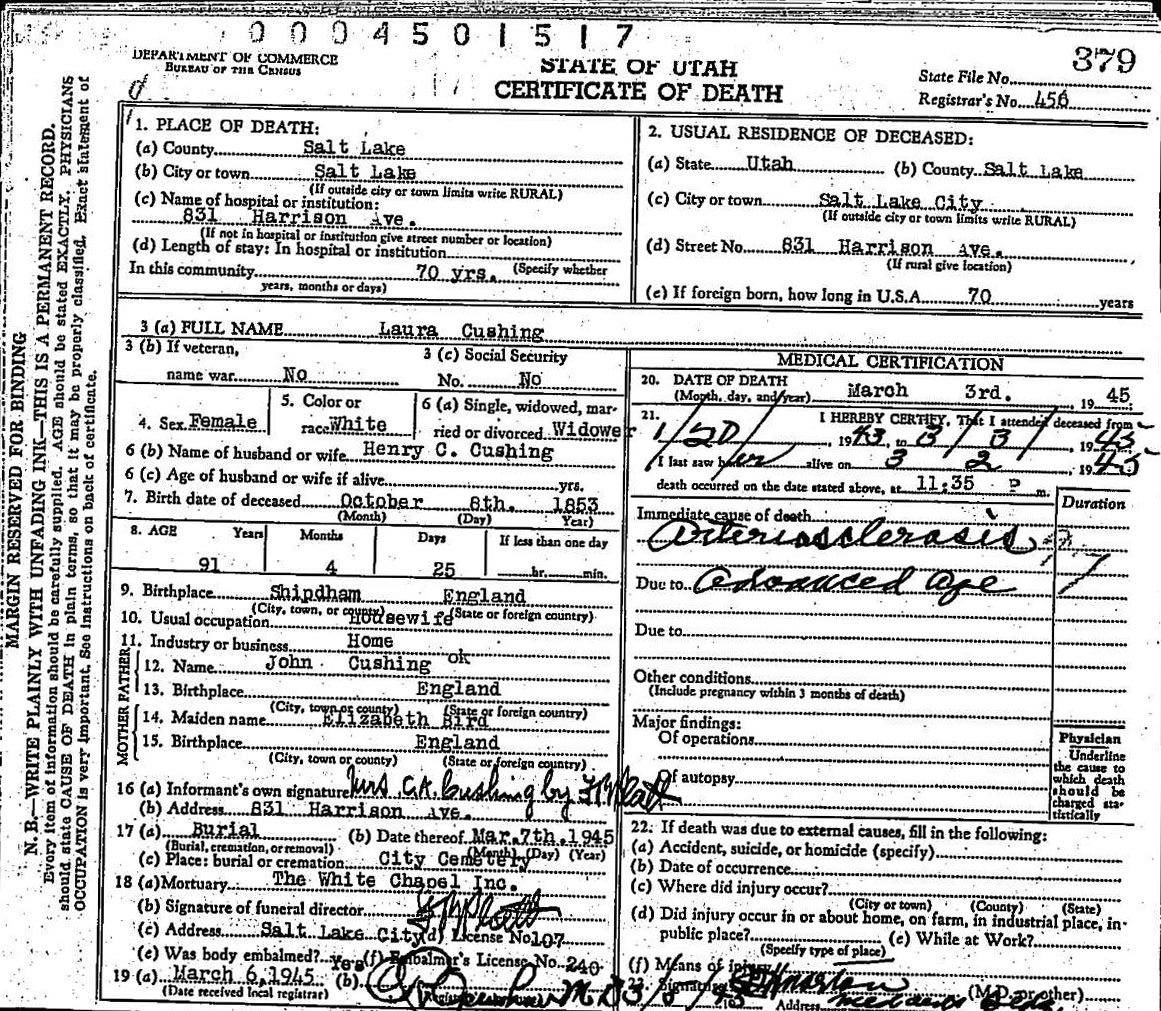 0 0 0 4 5 0 1 5 1 7
379
DEPARTMENT OF COMMERCE
BUREAU OF THE CENSUS
STATE OF UTAH
CERTIFICATE OF DEATH
State File No.
Registrar's No. 456
1. PLACE OF DEATH:
(a) County Salt Lake
(b) City or town Salt Lake
(If outside city or town limits write RURAL)
(c) Name of hospital or institution:
831 Harrison Ave.
(If not in hospital or institution give street number or location)
(d) Length of stay: In hospital or institution
In this community 70 yrs. (Specify whether
years, months or days)
2. USUAL RESIDENCE OF DECEASED:
(a) State Utah (b) County Salt Lake
(c) City or town Salt Lake City
(If outside city or town limits write RURAL)
(d) Street No. 831 Harrison Ave.
(If rural give location)
(e) If foreign born, how long in U.S.A. 70 years
3 (a) FULL NAME Laura Cushing
3 (b) If veteran,
name war No
3 (c) Social Security
No. No
4. Sex Female
5. Color or
race White
6 (a) Single, widowed, mar-
ried or divorced Widower
6 (b) Name of husband or wife Henry C. Cushing
6 (c) Age of husband or wife if alive yrs.
7. Birth date of deceased October 8th. 1853
(Month) (Day) Year)
8. AGE Years Months Days If less than one day
91 4 25 hr. min.
9. Birthplace Shipdham England
(City, town, or county) (State or foreign country)
10. Usual occupation Housewife
11. Industry or business Home
FATHER
12. Name John Cushing ok
13. Birthplace England
(City, town or county) (State or foreign country)
MOTHER
14. Maiden name Elizabeth Bird
15. Birthplace England
(City, town or county) (State or foreign country)
16 (a) Informant's own signature Mrs. Cushing by
(b) Address 831 Harrison Ave.
17 (a) Burial (b) Date thereof Mar. 7th. 1945
(Burial, cremation, or removal) (Month) (Day) (Year)
(c) Place: burial or cremation City Cemetery
18 (a) Mortuary The White Chapel Inc.
(b) Signature of funeral director
(c) Address Salt Lake City (d) License No. 107
(e) Was body embalmed? Yes (f) Embalmer's License No. 240
19 (a) March 6, 1945 (b)
(Date received local registrar)
MEDICAL CERTIFICATION
20. DATE OF DEATH March 3rd. 19 45
(Month, day, and year)
21. I HEREBY CERTIFY, That I attended deceased from
1/20/, 1943, to 3/3/, 1945
I last saw her alive on 3 2 1945
death occurred on the date stated above, at 11:35 P m.
Duration
Immediate cause of death
Arteriosclerosis
Due to Advanced Age
Due to
Other conditions
(Include pregnancy within 3 months of death)
Major findings:
Of operations
Of autopsy
Physician
Underline
the cause to
which death
should be
charged sta-
tistically
22. If death was due to external causes, fill in the following:
(a) Accident, suicide, or homicide (specify)
(b) Date of occurrence
(c) Where did injury occur?
(City or town) (County) (State)
(d) Did injury occur in or about home, on farm, in industrial place, in
public place? (e) While at Work?
(Specify type of place)
(f) Means of injury
23. Signature (M.D. or other)
Address
MARGIN RESERVED FOR BINDING
N. B.—WRITE PLAINLY WITH UNFADING INK—THIS IS A PERMANENT RECORD.
Every item of information should be carefully supplied. AGE should be stated EXACTLY. PHYSICIANS
should state CAUSE OF DEATH in plain terms, so that it may be properly classified. Exact statement of
OCCUPATION is very important. See instructions on back of certificate.